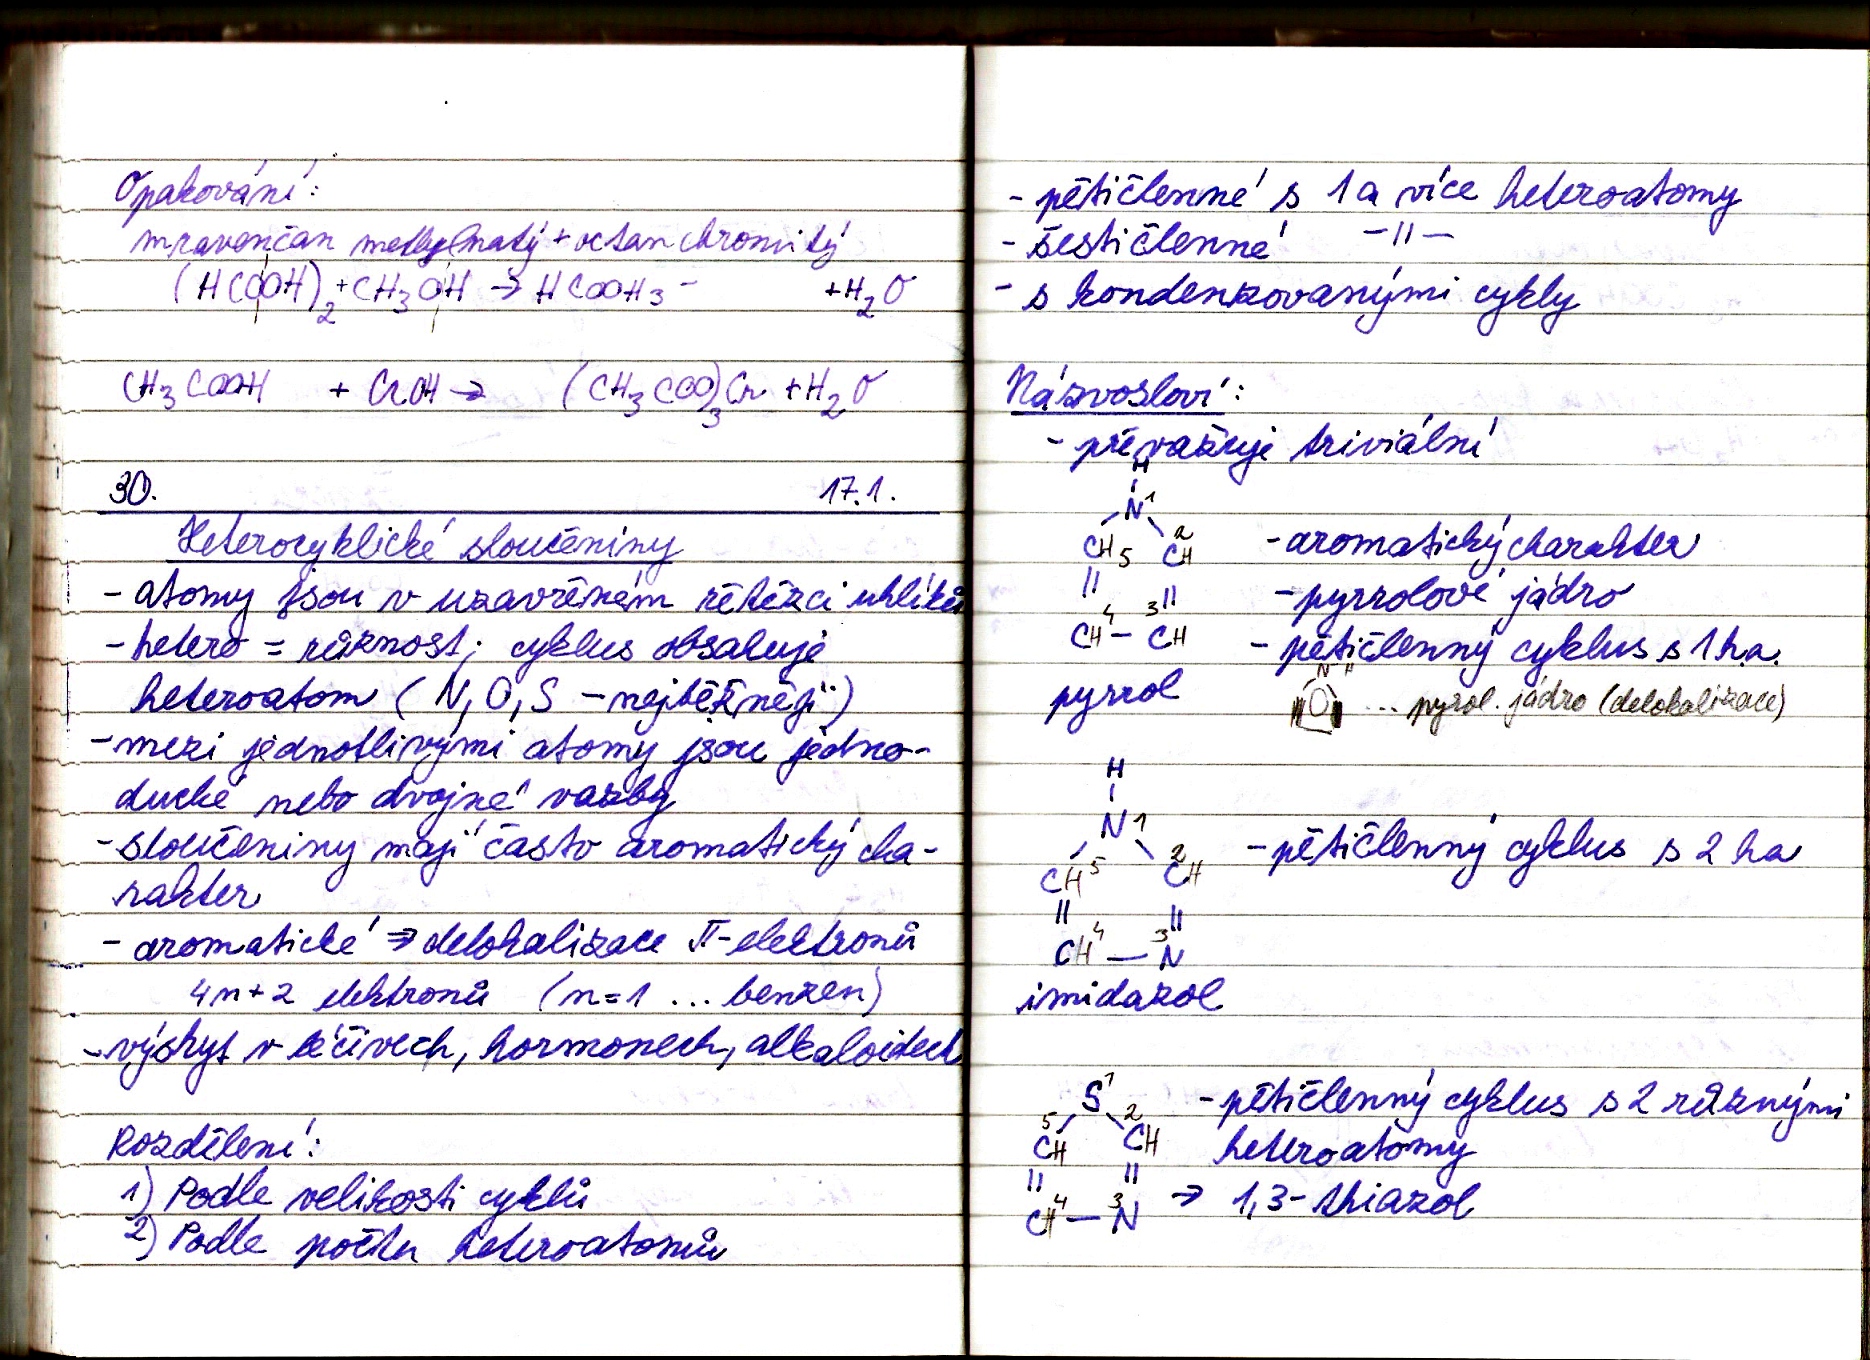 Opakování:
mravenčan methylnatý + octan chromitý
(HCOOH)2 + CH3OH → HCOOH3 - + H2O
CH3COOH + CrOH → (CH3COO)3Cr + H2O
30. 17.1.
Heterocyklické sloučeniny
- atomy jsou v uzavřeném řetězci uhlíků
- hetero = různost; cyklus obsahuje
heteroatom (N, O, S - nejběžněji)
- mezi jednotlivými atomy jsou jedno-
duché nebo dvojné vazby
- sloučeniny mají často aromatický cha-
rakter
- aromatické ⇒ delokalizace π-elektronů
4n+2 elektronů (n=1 ... benzen)
- výskyt v léčivech, hormonech, alkaloidech
Rozdělení:
1) Podle velikosti cyklů
2) Podle počtu heteroatomů
- pětičlenné s 1 a více heteroatomy
- šestičlenné -||-
- s kondenzovanými cykly
Názvosloví:
- převažuje triviální
H
N 1
CH 5 2 CH - aromatický charakter
|| || - pyrrolové jádro
CH 4 — 3 CH - pětičlenný cyklus s 1 h.a.
pyrrol N H ... pyrol. jádro (delokalizace)
H
N 1
CH 5 2 CH - pětičlenný cyklus s 2 ha
|| ||
CH 4 — 3 N
imidazol
S 1 - pětičlenný cyklus s 2 různými
5 CH 2 CH heteroatomy
|| ||
CH 4 — 3 N → 1,3-thiazol